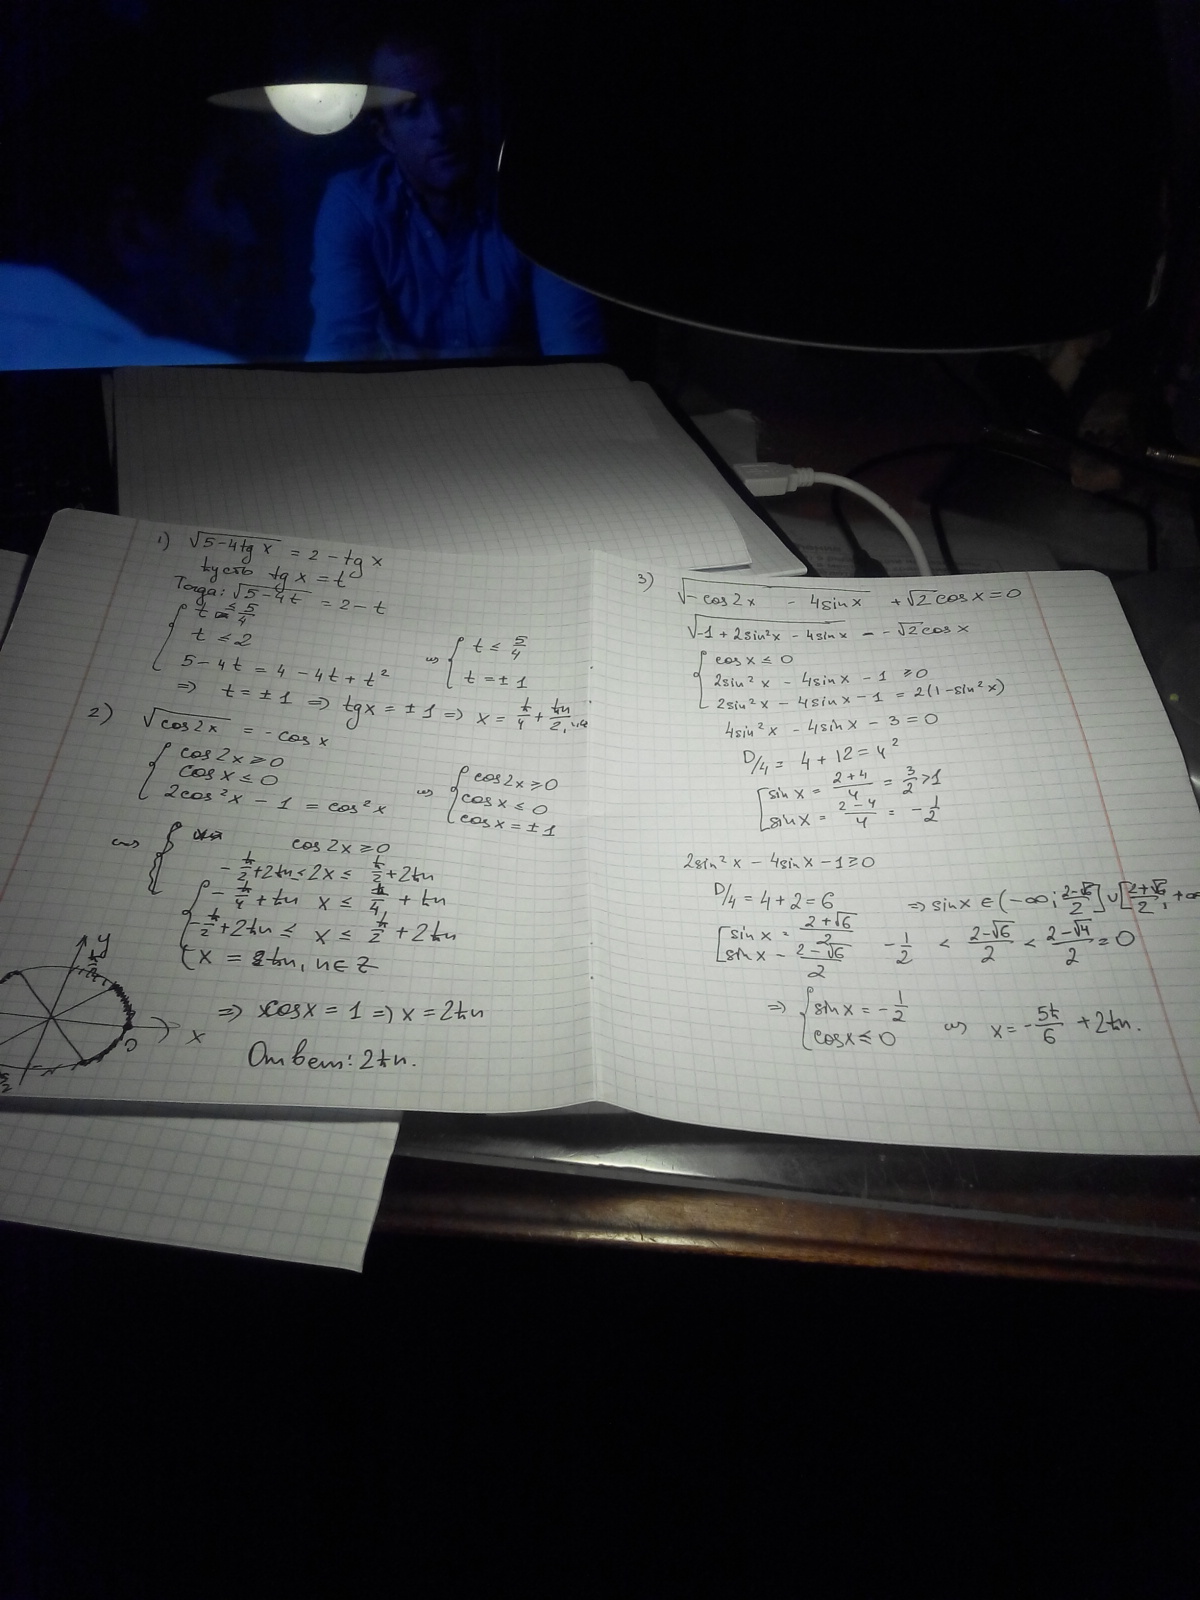 1) √(5-4tg x) = 2 - tg x
Пусть tg x = t
Тогда: √(5-4t) = 2 - t
{ t ≤ 5/4
t ≤ 2
5 - 4t = 4 - 4t + t² ⇔ { t ≤ 5/4
t = ±1
⇒ t = ±1 ⇒ tg x = ±1 ⇒ x = π/4 + πn/2,
2) √(cos2x) = -cos x
{ cos2x ≥ 0
cos x ≤ 0
2cos²x - 1 = cos²x ⇔ { cos2x ≥ 0
cos x ≤ 0
cos x = ±1
⇔ { cos2x ≥ 0
-π/2 + 2πn ≤ 2x ≤ π/2 + 2πn
{ -π/4 + πn x ≤ π/4 + πn
-π/2 + 2πn ≤ x ≤ π/2 + 2πn
x = 2πn, n ∈ Z
⇒ cos x = 1 ⇒ x = 2πn
Ответ: 2πn.
y
π/2
0
x
3) √(-cos2x - 4sinx) + √2 cos x = 0
√(-1 + 2sin²x - 4sinx) = -√2 cos x
{ cos x ≤ 0
2sin²x - 4sinx - 1 ≥ 0
2sin²x - 4sinx - 1 = 2(1 - sin²x)
4sin²x - 4sinx - 3 = 0
D/4 = 4 + 12 = 4²
[ sin x = (2+4)/4 = 3/2 > 1
sin x = (2-4)/4 = -1/2
2sin²x - 4sinx - 1 ≥ 0
D/4 = 4 + 2 = 6
[ sin x = (2+√6)/2
sin x = (2-√6)/2
⇒ sin x ∈ (-∞; (2-√6)/2] ∪ [(2+√6)/2; +∞
-1/2 < (2-√6)/2 < (2-√4)/2 = 0
⇒ { sin x = -1/2
cos x ≤ 0 ⇔ x = -5π/6 + 2πn.